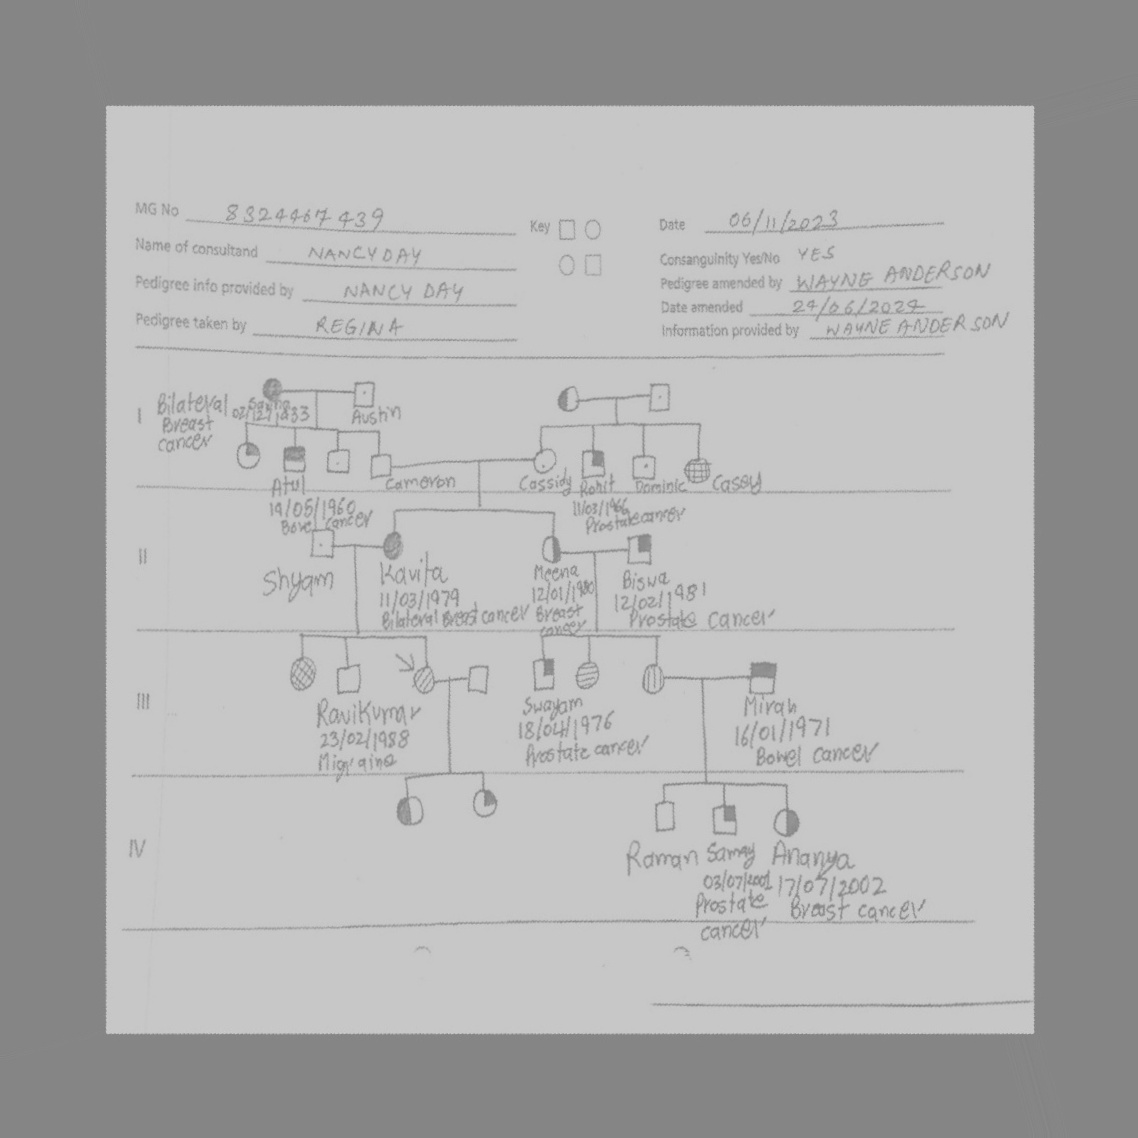 MG No 8324467439
Name of consultand NANCY DAY
Pedigree info provided by NANCY DAY
Pedigree taken by REGINA
Key
Date 06/11/2023
Consanguinity Yes/No YES
Pedigree amended by WAYNE ANDERSON
Date amended 24/06/2024
Information provided by WAYNE ANDERSON
I
Bilateral
Breast
cancer
02/12/1933
Austin
Atul
19/05/1960
Cancer
Cameron
Cassidy
Rohit
11/03/1966
Prostate cancer
Dominic
Casey
II
Shyam
Kavita
11/03/1979
Bilateral Breast cancer
Meena
12/01/1980
Breast
cancer
Biswa
12/02/1981
Prostate cancer
III
RaviKumar
23/02/1988
Migraine
Swayam
18/04/1976
Prostate cancer
Mirah
16/01/1971
Bowel cancer
IV
Raman
Samay
03/07/2001
Prostate
cancer
Ananya
17/07/2002
Breast cancer